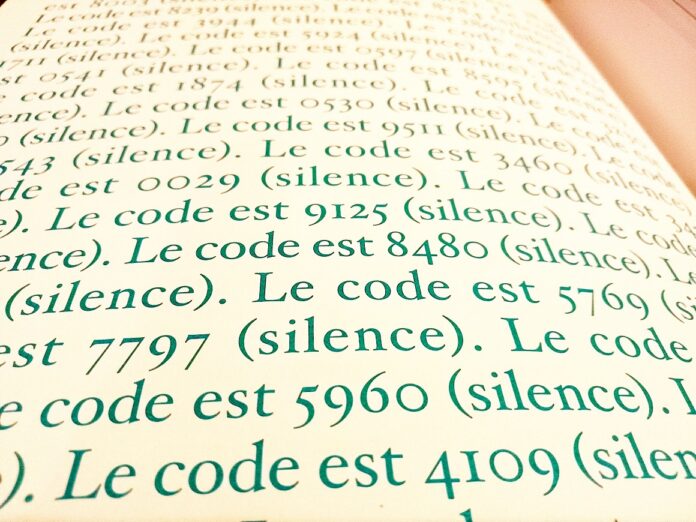 est 8003 (silence).
Le code est 8230 (silence).
Le code est 3944 (silence).
(silence). Le code est 5924 (silence).
1711 (silence). Le code est 0597 (silence).
st 0541 (silence). Le code est 8597
code est 1874 (silence). Le code est
ence). Le code est 0530 (silence). Le code
(silence). Le code est 9511 (silence). Le code
543 (silence). Le code est 3460 (silence).
de est 0029 (silence). Le code est
e). Le code est 9125 (silence). Le code
ence). Le code est 8480 (silence). L
(silence). Le code est 5769 (si
est 7797 (silence). Le code
e code est 5960 (silence). L
). Le code est 4109 (silen